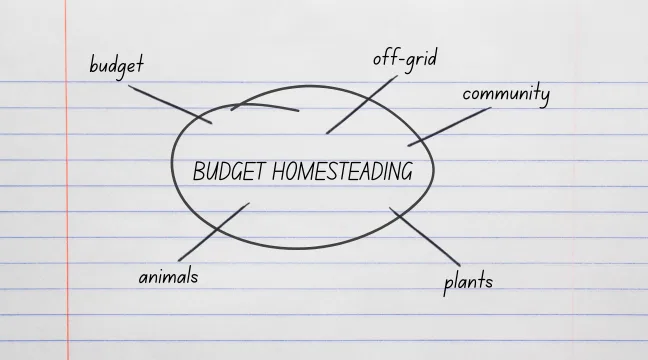 off-grid
budget
community
BUDGET HOMESTEADING
animals
plants